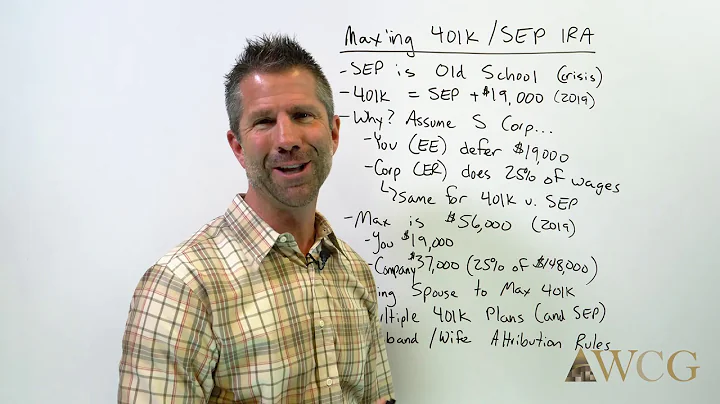 Max'ing 401K / SEP IRA
- SEP is Old School (crisis)
- 401K = SEP + $19,000 (2019)
- Why? Assume S Corp...
- You (EE) defer $19,000
- Corp (ER) does 25% of wages
↳ same for 401K v. SEP
- Max is $56,000 (2019)
- You $19,000
- Company $37,000 (25% of $148,000)
Spouse to Max 401K
401K Plans (and SEP)
/ Wife Attribution Rules
WCG